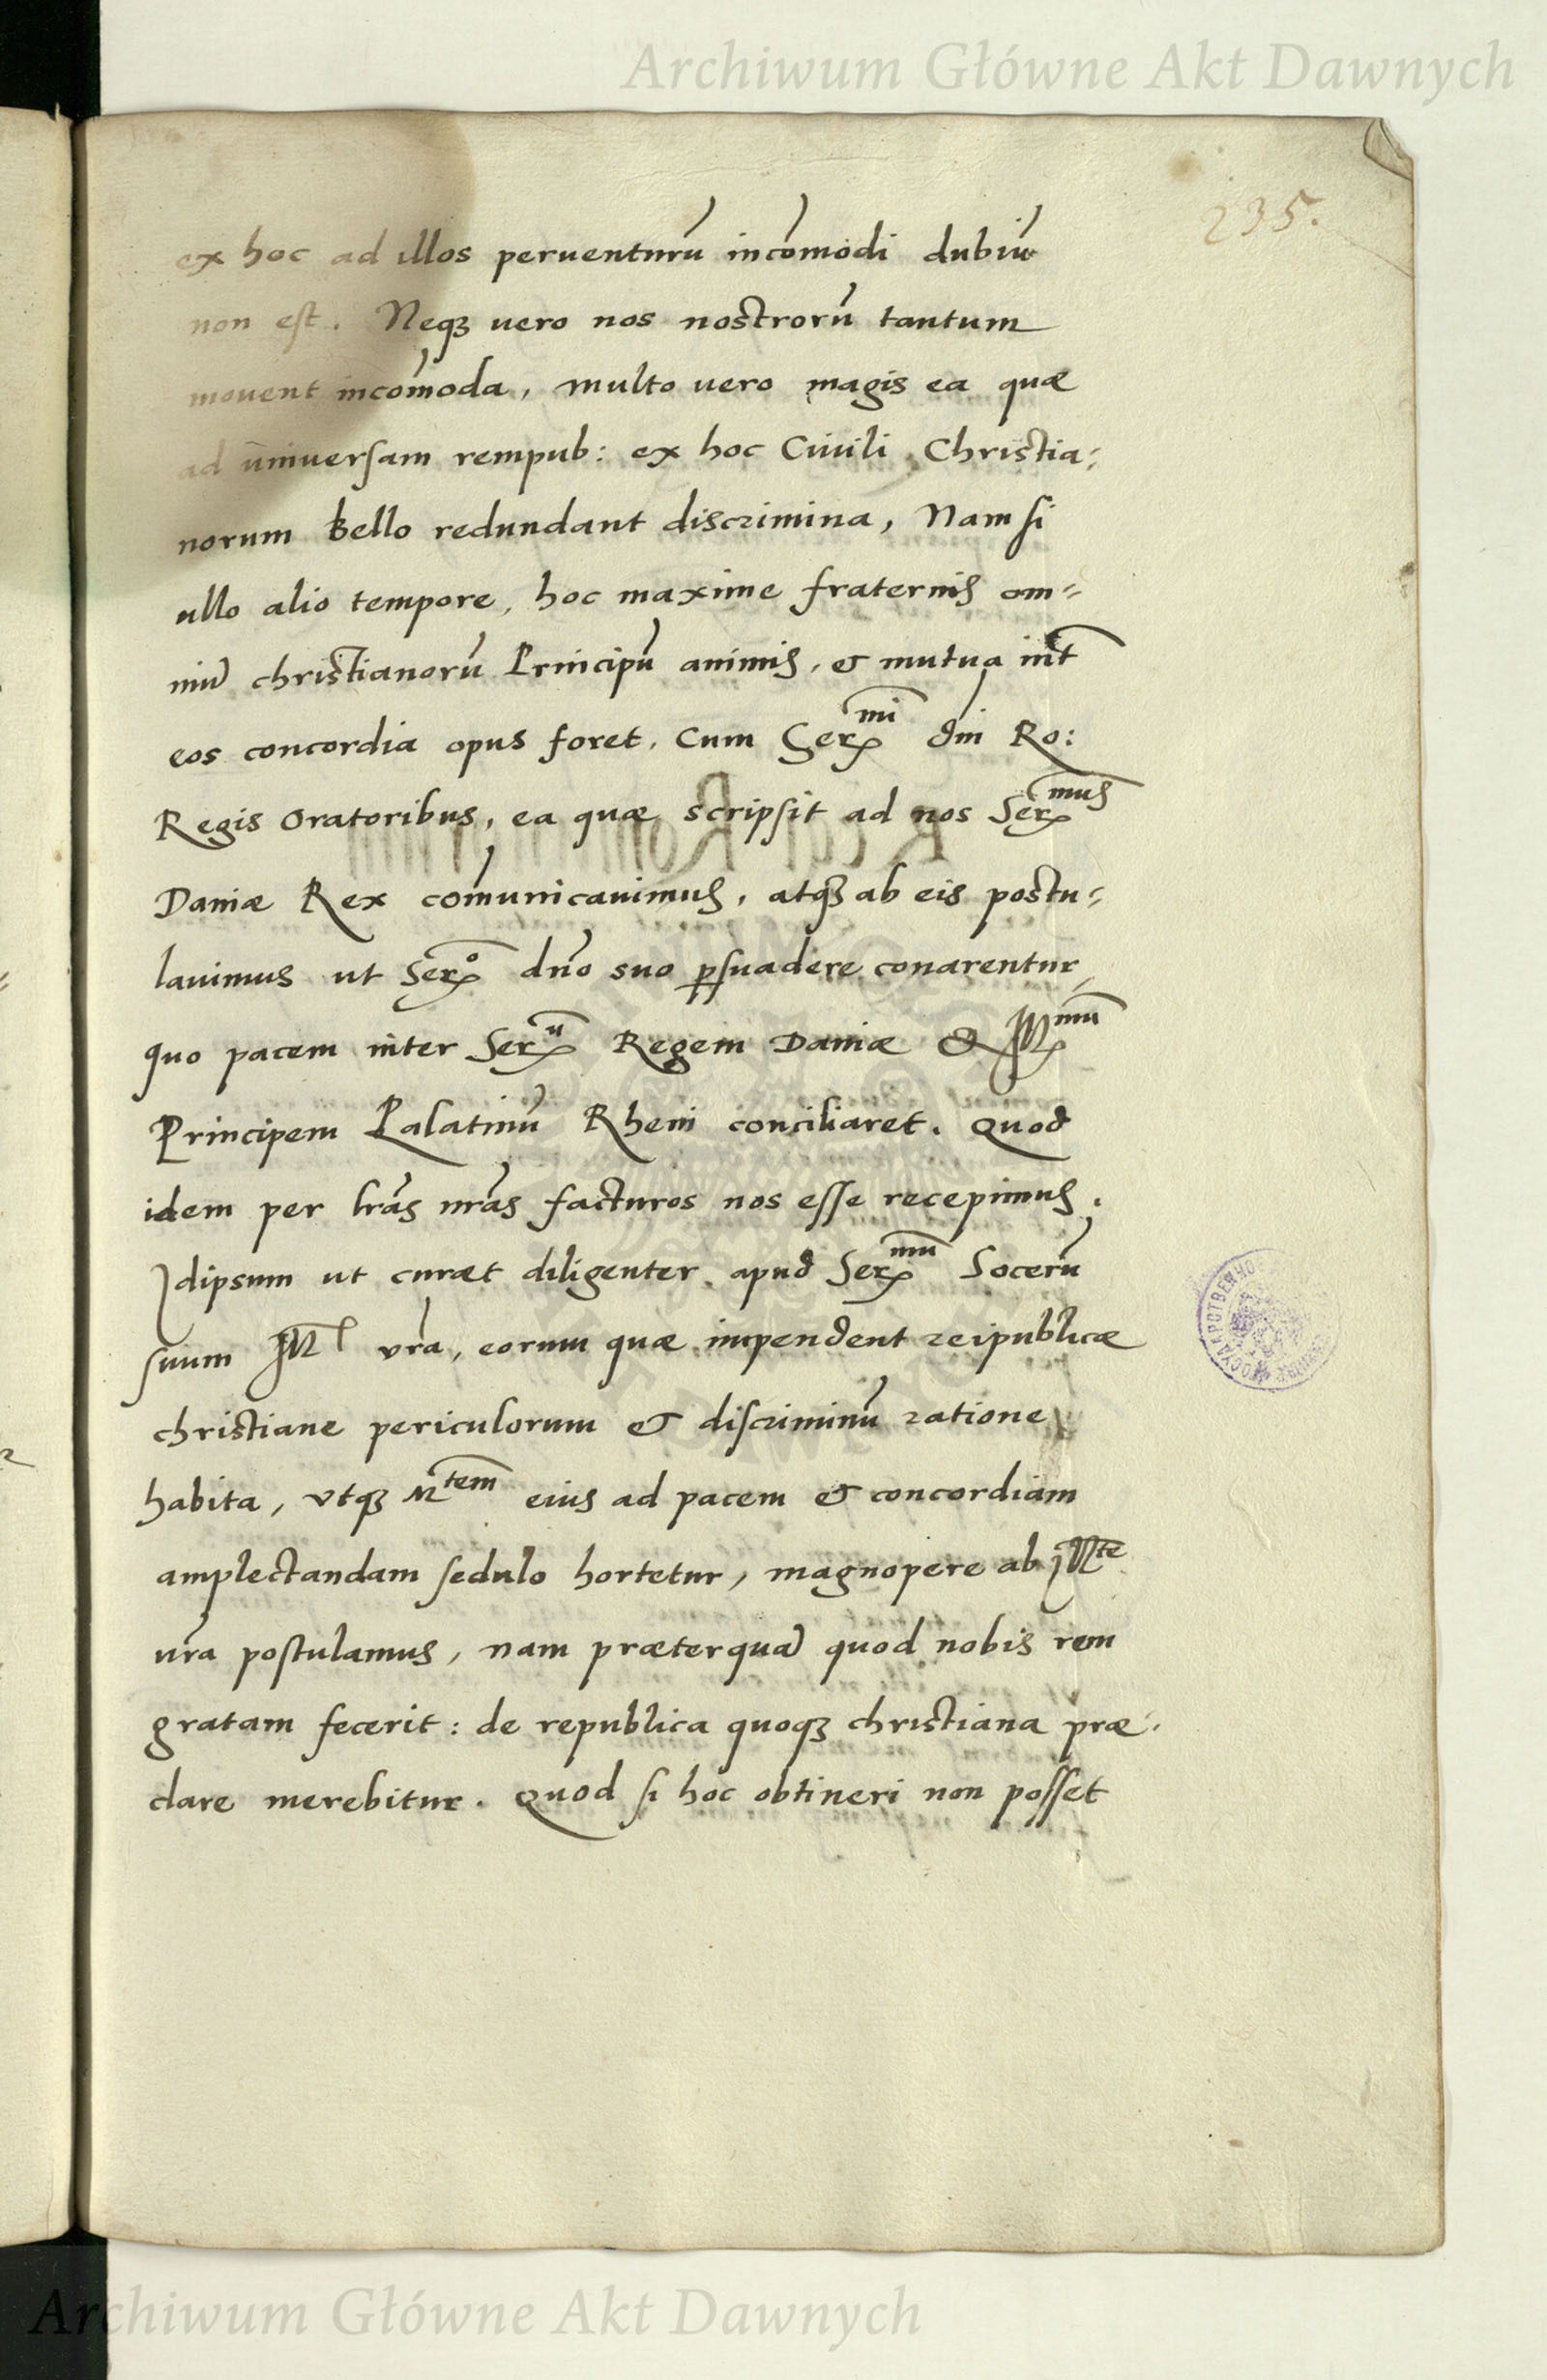 Archiwum Główne Akt Dawnych
235.
ex hoc ad illos peruenturũ incõmodi dubiũ
non est. Neqꝫ uero nos nostrorũ tantum
mouent incõmoda, multo uero magis ea quæ
ad universam rempub: ex hoc Civili Christia⸗
norum bello redundant discrimina, Nam si
ullo alio tempore, hoc maxime fraternis om⸗
niũ christianorũ Principũ animis, & mutua int̃
eos concordia opus foret. Cum Serᵐⁱ dñi Ro:
Regis Oratoribus, ea quæ scripsit ad nos Serᵐᵘˢ
Daniæ Rex cõmunicauimus, atqꝫ ab eis postu⸗
lauimus ut Serᵒ dño suo ꝑsuadere conarentur,
quo pacem inter Serᵘ̃ Regem Daniæ & Illᵐᵘ̃
Principem Palatinũ Rheni conciliaret. Quod
idem per l̃ras nr̃as facturos nos esse recepimus.
Idipsum ut curæt diligenter apud Serᵐᵘ̃ Socerũ
suum Ill vr̃a, eorum quæ impendent reipublicæ
christiane periculorum & discriminũ ratione
habita, vtqꝫ Mᵗᵉᵐ eius ad pacem & concordiam
amplectandam sedulo hortetur, magnopere ab Illᵗᵉ
ur̃a postulamus, nam præterquã quod nobis rem
gratam fecerit: de republica quoqꝫ christiana præ⸗
clare merebitur. Quod si hoc obtineri non posset
Archiwum Główne Akt Dawnych